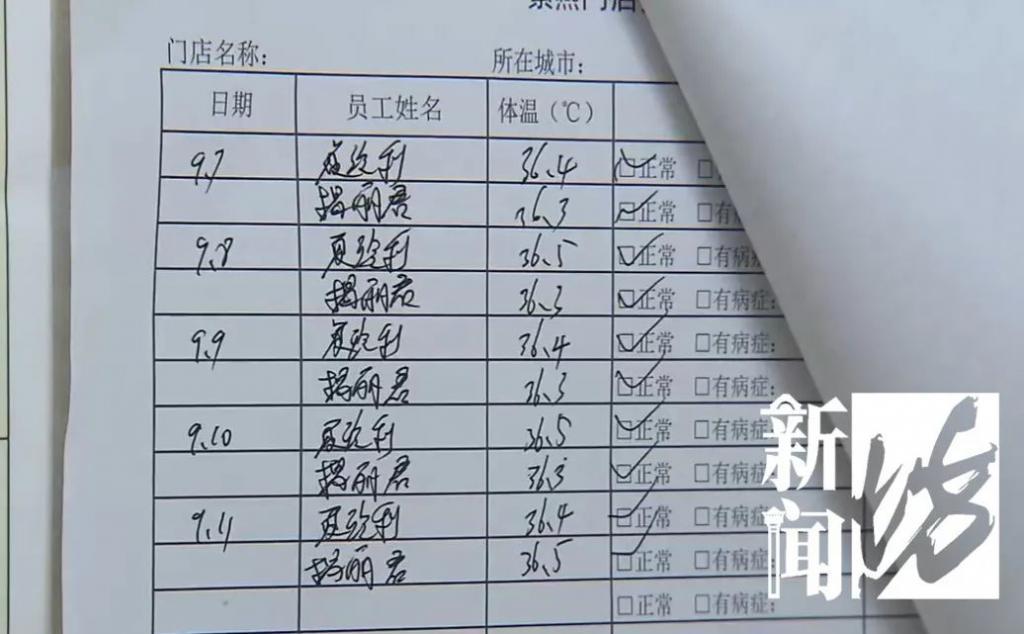 门店名称: 所在城市:
日期 员工姓名 体温（℃）
9.7 36.4 正常
揭丽君 36.3 正常 有病
9.8 36.5 正常 有病症
揭丽君 36.3 正常 有病症:
9.9 36.4 正常 有病症:
揭丽君 36.3 正常 有病症:
9.10 36.5 正常 有病症
揭丽君 36.3 正常 有病症
9.11 36.4 正常 有病症
揭丽君 36.5 正常 有病症
正常 有病症:
新闻坊